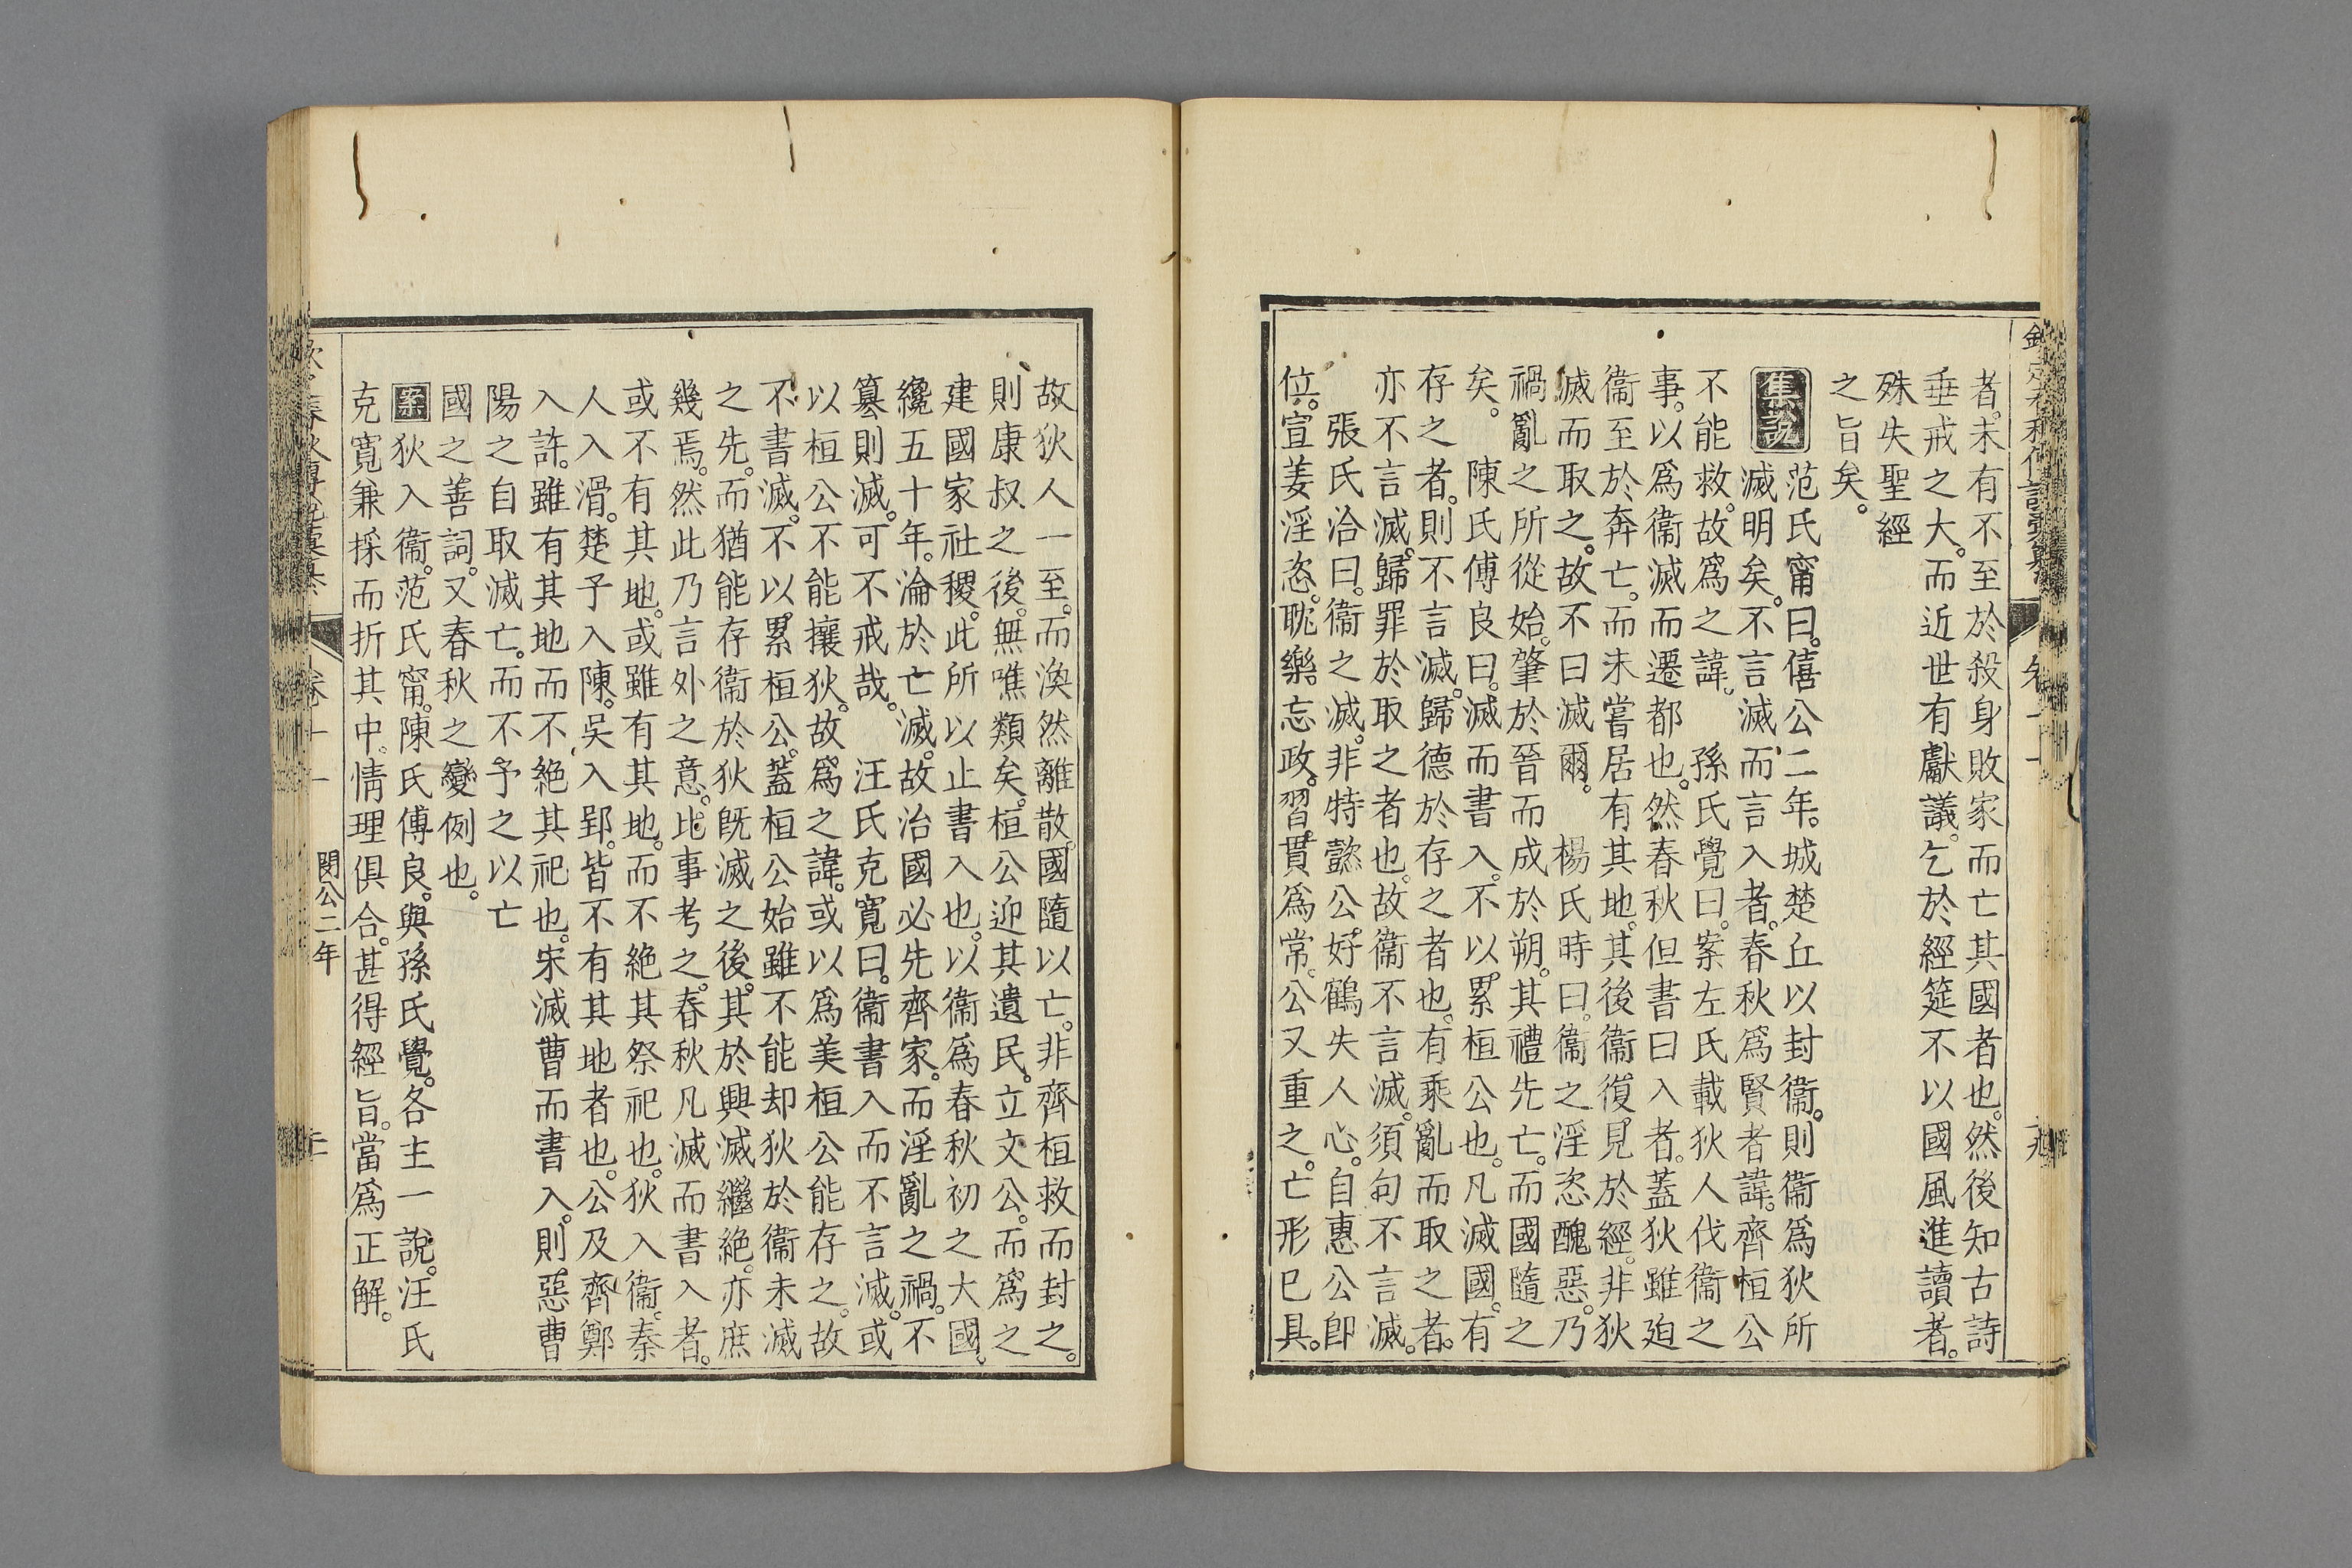 者。未有不至於殺身敗家而亡其國者也。然後知古詩
垂戒之大。而近世有獻議。乞於經筵不以國風進讀者。
殊失聖經
之旨矣。
集說
范氏甯曰。僖公二年。城楚丘以封衞。則衞爲狄所
滅明矣。不言滅而言入者。春秋爲賢者諱。齊桓公
不能救。故爲之諱。 孫氏覺曰。案左氏載狄人伐衞之
事。以爲衞滅而遷都也。然春秋但書曰入者。蓋狄雖廹
衞至於奔亡。而未嘗居有其地。其後衞復見於經。非狄
滅而取之。故不曰滅爾。 楊氏時曰。衞之淫恣醜惡。乃
禍亂之所從始。肇於晉而成於朔。其禮先亡。而國隨之
矣。 陳氏傅良曰。滅而書入。不以累桓公也。凡滅國。有
存之者。則不言滅。歸德於存之者也。有乘亂而取之者。
亦不言滅。歸罪於取之者也。故衞不言滅。須句不言滅。
張氏洽曰。衞之滅。非特懿公。好鶴失人心。自惠公卽
位。宣姜淫恣。耽樂忘政。習貫爲常。公又重之。亡形已具。
故狄人一至。而渙然離散。國隨以亡。非齊桓救而封之。
則康叔之後。無噍類矣。桓公迎其遺民。立文公。而爲之
建國家社稷。此所以止書入也。以衞爲春秋初之大國。
纔五十年。淪於亡滅。故治國必先齊家。而淫亂之禍。不
篡則滅。可不戒哉。 汪氏克寬曰。衞書入而不言滅。或
以桓公不能攘狄。故爲之諱。或以爲美桓公能存之。故
不書滅。不以累桓公。蓋桓公始雖不能却狄於衞未滅
之先。而猶能存衞於狄旣滅之後。其於興滅繼絕。亦庶
幾焉。然此乃言外之意。比事考之。春秋凡滅而書入者。
或不有其地。或雖有其地。而不絕其祭祀也。狄入衞。秦
人入滑。楚子入陳。吳入郢。皆不有其地者也。公及齊鄭
入許。雖有其地而不絕其祀也。宋滅曹而書入。則惡曹
陽之自取滅亡。而不予之以亡
國之善詞。又春秋之變例也。
案狄入衞。范氏甯。陳氏傅良。與孫氏覺。各主一說。汪氏
克寬兼採而折其中。情理俱合。甚得經旨。當爲正解。
閔公二年